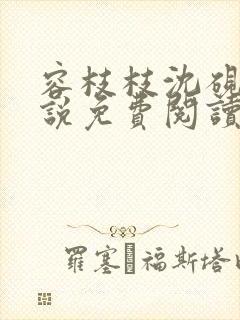 容枝枝沈砚
說免費閱讀
羅塞 福斯塔